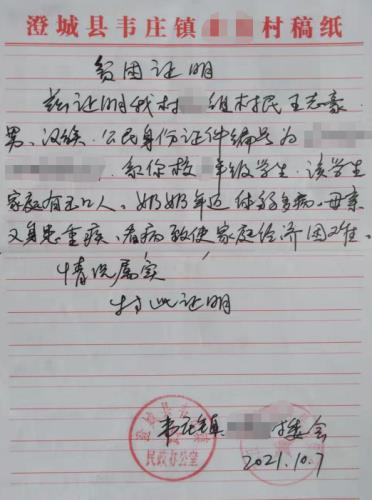 澄城县韦庄镇 村稿纸
贫困证明
兹证明我村 组村民王志豪
男、汉族.公民身份证件编号为
,系你校 年级学生.该学生
家庭有五口人、奶奶年迈体弱多病.母亲
又身患重疾、看病致使家庭经济困难.
情况属实
特此证明
韦庄镇 村委会
民政办公室
2021.10.7